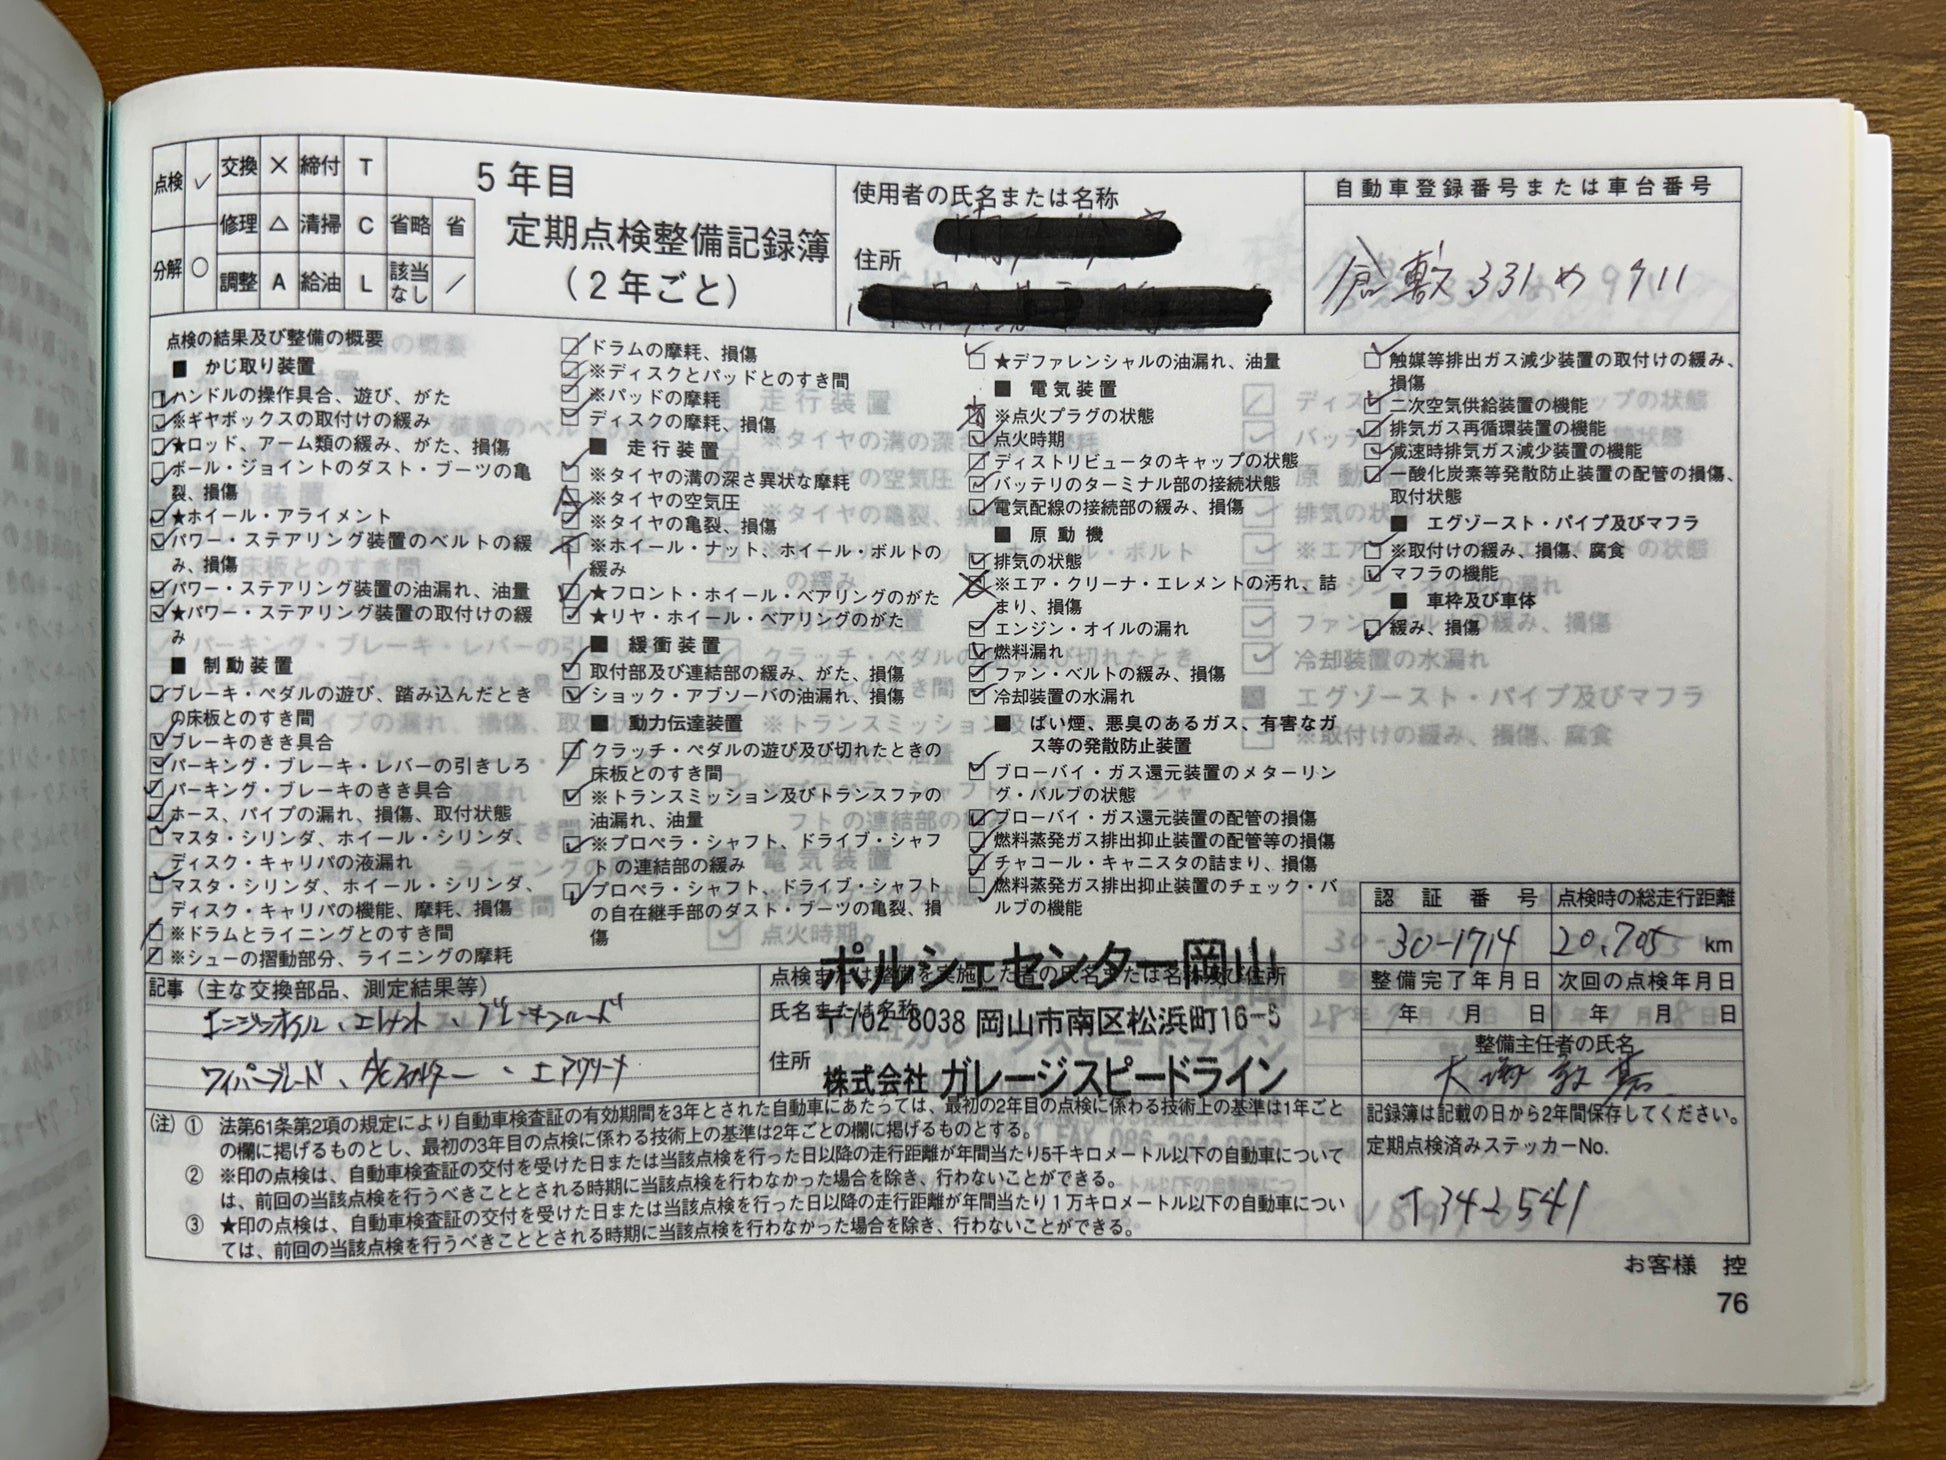 点検 ✓ 交換 × 締付 T
修理 △ 清掃 C 省略 省
分解 ○ 調整 A 給油 L 該当なし ／
5年目
定期点検整備記録簿
(2年ごと)
使用者の氏名または名称
住所
自動車登録番号または車台番号
倉敷 331 め 9911
点検の結果及び整備の概要
■ かじ取り装置
ハンドルの操作具合、遊び、がた
※ギヤボックスの取付けの緩み
★ロッド、アーム類の緩み、がた、損傷
ボール・ジョイントのダスト・ブーツの亀
裂、損傷
★ホイール・アライメント
パワー・ステアリング装置のベルトの緩
み、損傷
パワー・ステアリング装置の油漏れ、油量
★パワー・ステアリング装置の取付けの緩
み
■ 制動装置
ブレーキ・ペダルの遊び、踏み込んだとき
の床板とのすき間
ブレーキのきき具合
パーキング・ブレーキ・レバーの引きしろ
パーキング・ブレーキのきき具合
ホース、パイプの漏れ、損傷、取付状態
マスタ・シリンダ、ホイール・シリンダ、
ディスク・キャリパの液漏れ
マスタ・シリンダ、ホイール・シリンダ、
ディスク・キャリパの機能、摩耗、損傷
※ドラムとライニングとのすき間
※シューの摺動部分、ライニングの摩耗
ドラムの摩耗、損傷
※ディスクとパッドとのすき間
※パッドの摩耗
ディスクの摩耗、損傷
■ 走行装置
※タイヤの溝の深さ異状な摩耗
※タイヤの空気圧
※タイヤの亀裂、損傷
※ホイール・ナット、ホイール・ボルトの
緩み
★フロント・ホイール・ベアリングのがた
★リヤ・ホイール・ベアリングのがた
■ 緩衝装置
取付部及び連結部の緩み、がた、損傷
ショック・アブソーバの油漏れ、損傷
■ 動力伝達装置
クラッチ・ペダルの遊び及び切れたときの
床板とのすき間
※トランスミッション及びトランスファの
油漏れ、油量
※プロペラ・シャフト、ドライブ・シャフ
トの連結部の緩み
プロペラ・シャフト、ドライブ・シャフト
の自在継手部のダスト・ブーツの亀裂、損
傷
★デファレンシャルの油漏れ、油量
■ 電気装置
※点火プラグの状態
点火時期
ディストリビュータのキャップの状態
バッテリのターミナル部の接続状態
電気配線の接続部の緩み、損傷
■ 原動機
排気の状態
※エア・クリーナ・エレメントの汚れ、詰
まり、損傷
エンジン・オイルの漏れ
燃料漏れ
ファン・ベルトの緩み、損傷
冷却装置の水漏れ
■ ばい煙、悪臭のあるガス、有害なガ
ス等の発散防止装置
ブローバイ・ガス還元装置のメターリン
グ・バルブの状態
ブローバイ・ガス還元装置の配管の損傷
燃料蒸発ガス排出抑止装置の配管等の損傷
チャコール・キャニスタの詰まり、損傷
燃料蒸発ガス排出抑止装置のチェック・バ
ルブの機能
触媒等排出ガス減少装置の取付けの緩み、
損傷
二次空気供給装置の機能
排気ガス再循環装置の機能
減速時排気ガス減少装置の機能
一酸化炭素等発散防止装置の配管の損傷、
取付状態
■ エグゾースト・パイプ及びマフラ
※取付けの緩み、損傷、腐食
マフラの機能
■ 車枠及び車体
緩み、損傷
認証番号 点検時の総走行距離
30-1714 20,705 km
整備完了年月日 次回の点検年月日
年 月 日 年 月 日
整備主任者の氏名
記事 (主な交換部品、測定結果等)
エンジンオイル、エレメント、ブレーキフルード
ワイパーブレード、A/Cフィルター、エアクリーナ
点検または整備を実施した者の氏名または名称及び住所
氏名または名称
住所
ポルシェセンター岡山
〒702-8038 岡山市南区松浜町16-5
株式会社 ガレージスピードライン
(注) ① 法第61条第2項の規定により自動車検査証の有効期間を3年とされた自動車にあたっては、最初の2年目の点検に係わる技術上の基準は1年ごと
の欄に掲げるものとし、最初の3年目の点検に係わる技術上の基準は2年ごとの欄に掲げるものとする。
② ※印の点検は、自動車検査証の交付を受けた日または当該点検を行った日以降の走行距離が年間当たり5千キロメートル以下の自動車について
は、前回の当該点検を行うべきこととされる時期に当該点検を行わなかった場合を除き、行わないことができる。
③ ★印の点検は、自動車検査証の交付を受けた日または当該点検を行った日以降の走行距離が年間当たり1万キロメートル以下の自動車につい
ては、前回の当該点検を行うべきこととされる時期に当該点検を行わなかった場合を除き、行わないことができる。
記録簿は記載の日から2年間保存してください。
定期点検済みステッカーNo.
1342541
お客様 控
76